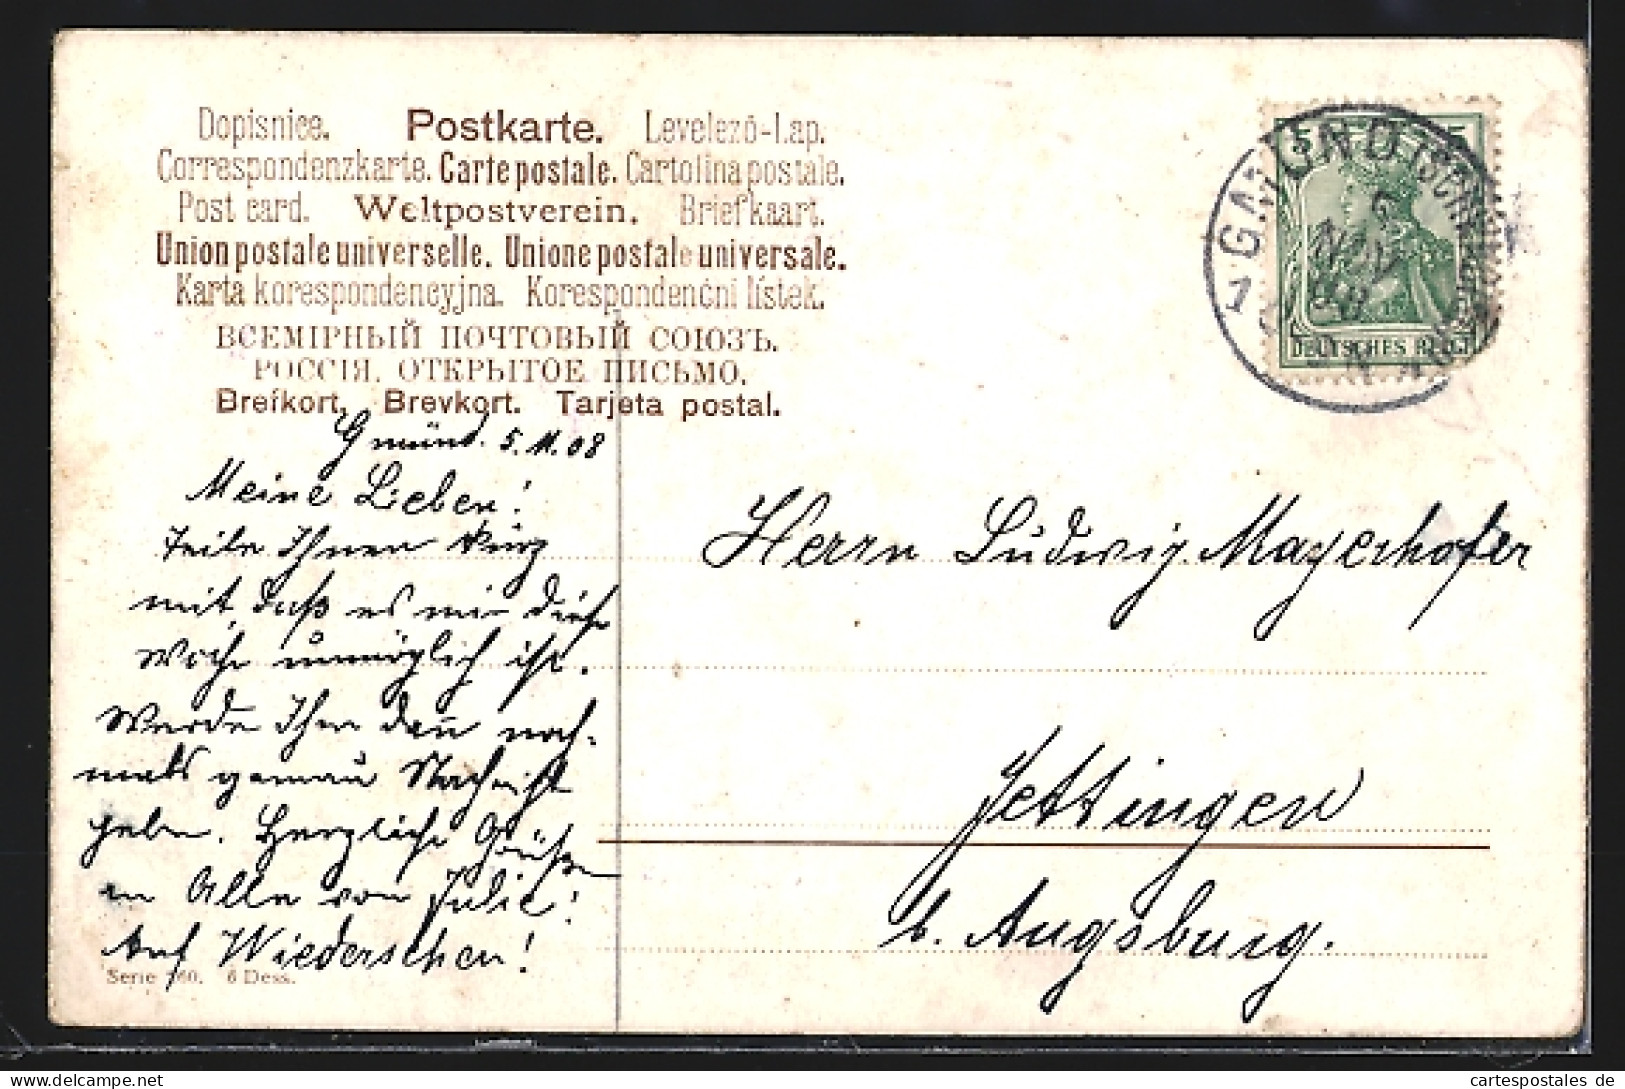 Dopisnice. Postkarte. Levelező-Lap.
Correspondenzkarte. Carte postale. Cartolina postale.
Post card. Weltpostverein. Briefkaart.
Union postale universelle. Unione postale universale.
Karta korespondencyjna. Korespondenční lístek.
ВСЕМІРНЫЙ ПОЧТОВЫЙ СОЮЗЪ.
РОССІЯ. ОТКРЫТОЕ ПИСЬМО.
Brefkort. Brevkort. Tarjeta postal.
Gmünd. 5.11.08
Meine Lieben!
Teile Ihnen kurz
mit, daß es mir diese
Woche unmöglich ist.
Werde Ihnen dann noch-
mals genau Nachricht
geben. Herzliche Grüße
an Alle von Julie!
Auf Wiedersehen!
Serie 760. 6 Dess.
GMÜND (SCHW
5
NOV
DEUTSCHES REICH
5 5
Herrn Ludwig Mayerhofer
Jettingen
b. Augsburg.
cartespostales de